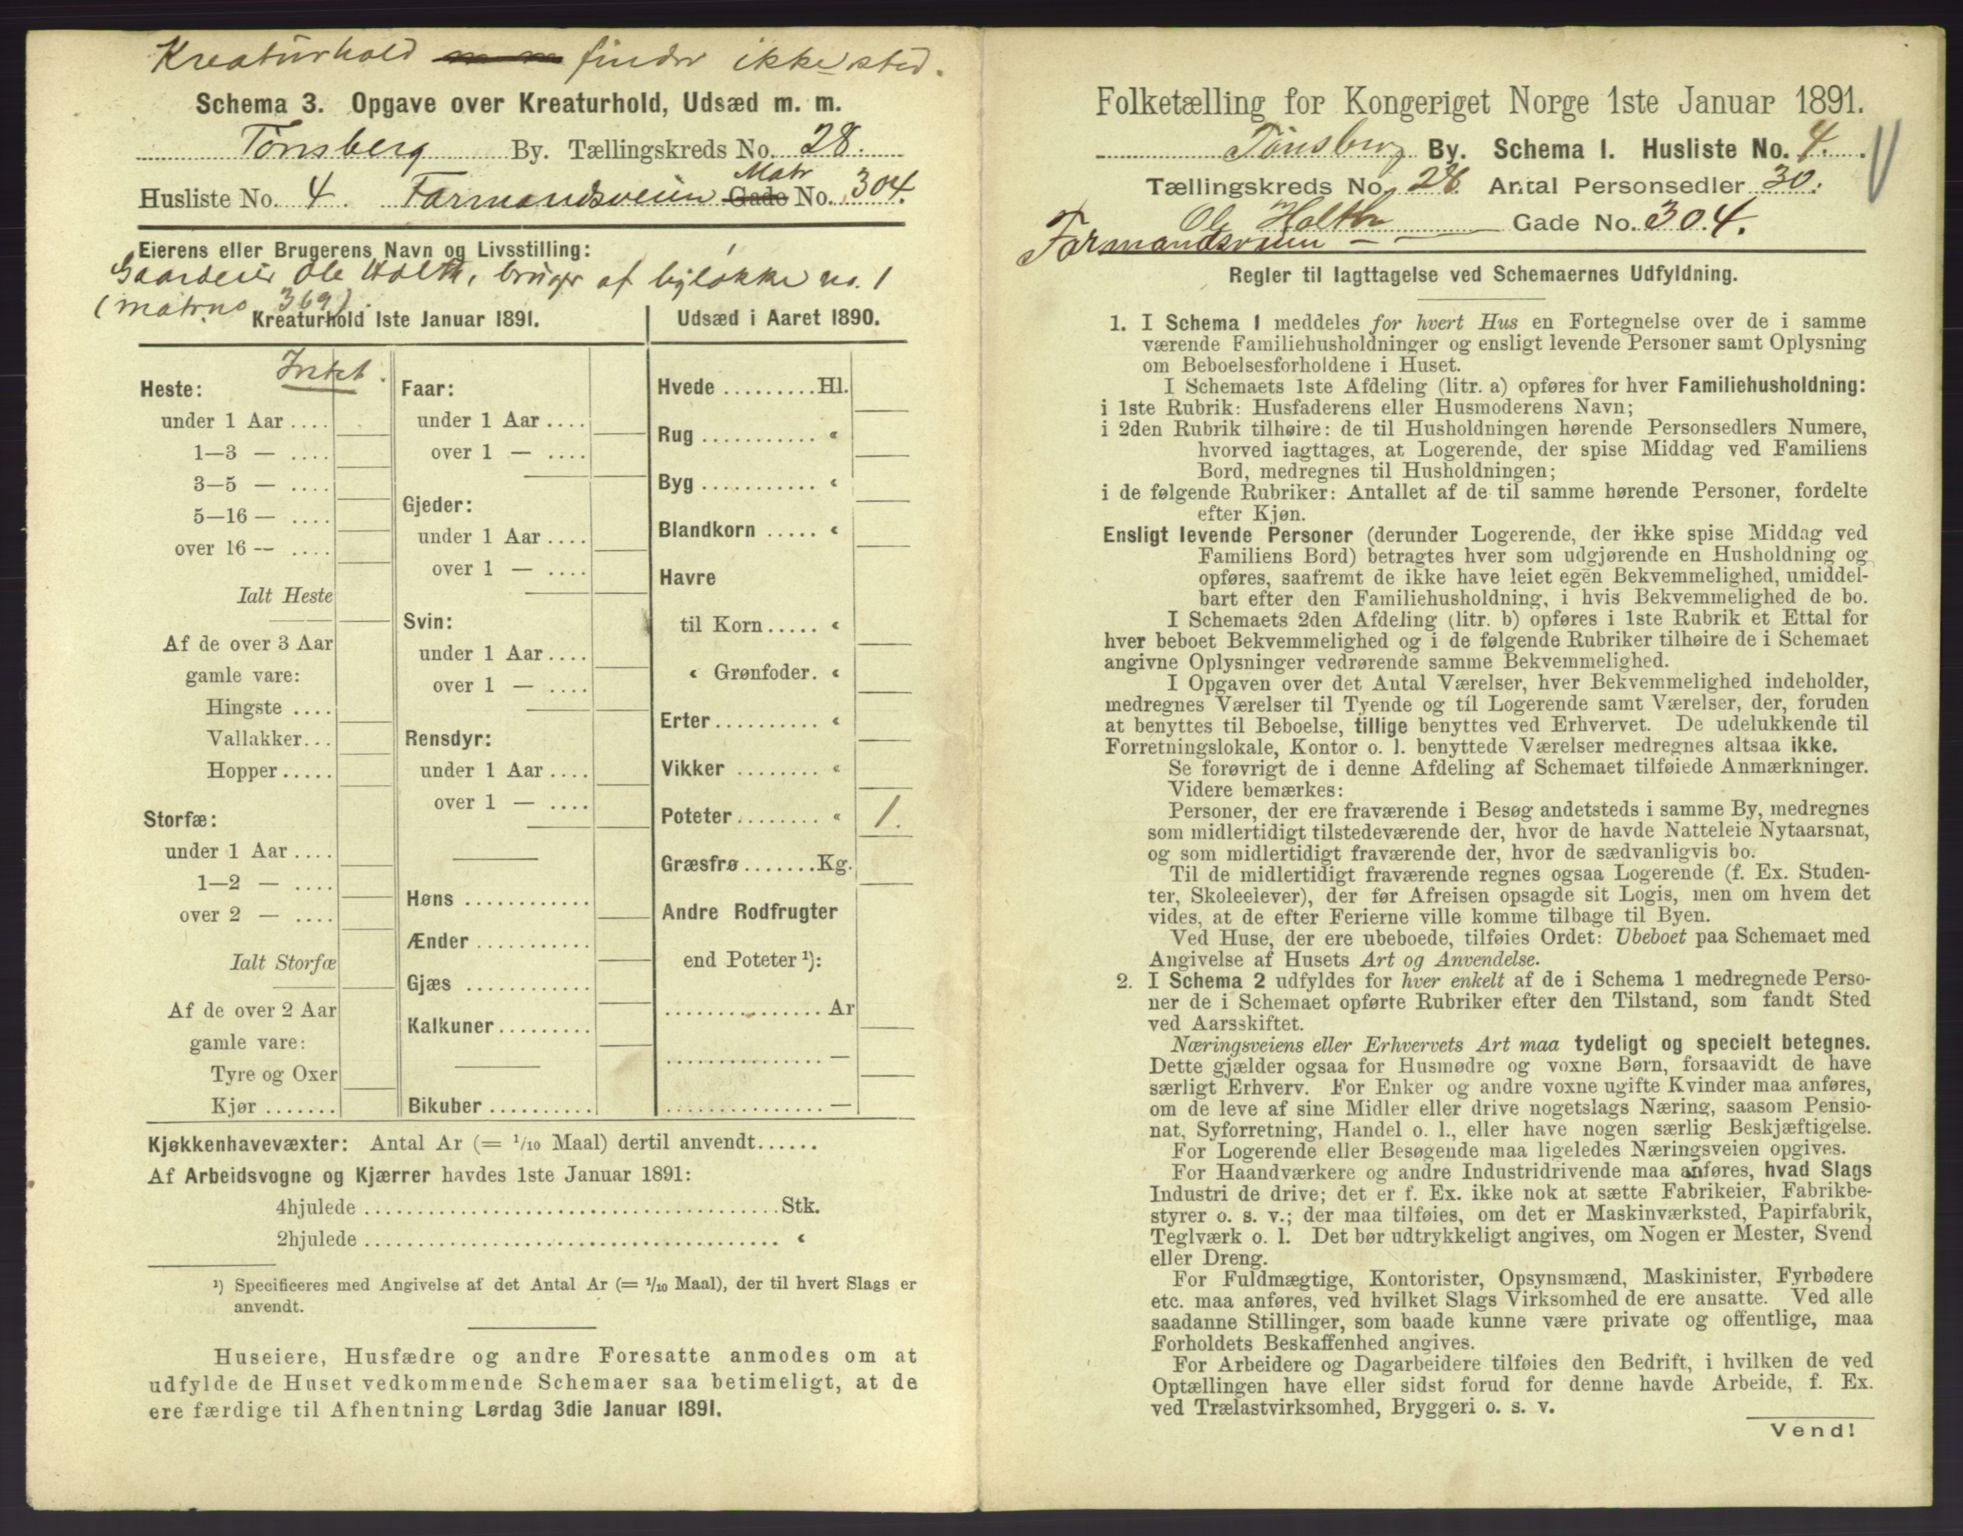 Kreaturhold finder ikke sted.
Schema 3. Opgave over Kreaturhold, Udsæd m. m.
Tønsberg By. Tællingskreds No. 28.
Matr
Husliste No. 4. Farmandsveien Gade No. 304.
Eierens eller Brugerens Navn og Livsstilling:
Gaardeier Ole Holth, bruger af byløkke no. 1
(matr.no 369).
Kreaturhold 1ste Januar 1891.
Intet.
Heste:
under 1 Aar ....
1—3 — ....
3—5 — ....
5—16 — ....
over 16 — ....
Ialt Heste
Af de over 3 Aar
gamle vare:
Hingste ....
Vallakker...
Hopper.....
Storfæ:
under 1 Aar ....
1—2 — ....
over 2 — ....
Ialt Storfæ
Af de over 2 Aar
gamle vare:
Tyre og Oxer
Kjør .......
Faar:
under 1 Aar ....
over 1 — ....
Gjeder:
under 1 Aar ....
over 1 — ....
Svin:
under 1 Aar ....
over 1 — ....
Rensdyr:
under 1 Aar ....
over 1 — ....
Høns ............
Ænder ...........
Gjæs ............
Kalkuner.........
Bikuber ..........
Udsæd i Aaret 1890.
Hvede .........Hl.
Rug ........... «
Byg ........... «
Blandkorn ..... «
Havre
til Korn..... «
« Grønfoder. «
Erter.......... «
Vikker ........ «
Poteter........ « 1.
Græsfrø.......Kg.
Andre Rodfrugter
end Poteter ¹):
............... Ar
............... —
............... —
Kjøkkenhavevæxter: Antal Ar (= 1/10 Maal) dertil anvendt......
Af Arbeidsvogne og Kjærrer havdes 1ste Januar 1891:
4hjulede ....................................... Stk.
2hjulede ....................................... «
¹) Specificeres med Angivelse af det Antal Ar (= 1/10 Maal), der til hvert Slags er
anvendt.
Huseiere, Husfædre og andre Foresatte anmodes om at
udfylde de Huset vedkommende Schemaer saa betimeligt, at de
ere færdige til Afhentning Lørdag 3die Januar 1891.
Folketælling for Kongeriget Norge 1ste Januar 1891.
Tønsberg By. Schema I. Husliste No. 4.
Tællingskreds No. 28. Antal Personsedler 30.
Ole Holth Gade No. 304.
Farmandsveien
Regler til Iagttagelse ved Schemaernes Udfyldning.
1. I Schema 1 meddeles for hvert Hus en Fortegnelse over de i samme
værende Familiehusholdninger og ensligt levende Personer samt Oplysning
om Beboelsesforholdene i Huset.
I Schemaets 1ste Afdeling (litr. a) opføres for hver Familiehusholdning:
i 1ste Rubrik: Husfaderens eller Husmoderens Navn;
i 2den Rubrik tilhøire: de til Husholdningen hørende Personsedlers Numere,
hvorved iagttages, at Logerende, der spise Middag ved Familiens
Bord, medregnes til Husholdningen;
i de følgende Rubriker: Antallet af de til samme hørende Personer, fordelte
efter Kjøn.
Ensligt levende Personer (derunder Logerende, der ikke spise Middag ved
Familiens Bord) betragtes hver som udgjørende en Husholdning og
opføres, saafremt de ikke have leiet egen Bekvemmelighed, umiddel-
bart efter den Familiehusholdning, i hvis Bekvemmelighed de bo.
I Schemaets 2den Afdeling (litr. b) opføres i 1ste Rubrik et Ettal for
hver beboet Bekvemmelighed og i de følgende Rubriker tilhøire de i Schemaet
angivne Oplysninger vedrørende samme Bekvemmelighed.
I Opgaven over det Antal Værelser, hver Bekvemmelighed indeholder,
medregnes Værelser til Tyende og til Logerende samt Værelser, der, foruden
at benyttes til Beboelse, tillige benyttes ved Erhvervet. De udelukkende til
Forretningslokale, Kontor o. l. benyttede Værelser medregnes altsaa ikke.
Se forøvrigt de i denne Afdeling af Schemaet tilføiede Anmærkninger.
Videre bemærkes:
Personer, der ere fraværende i Besøg andetsteds i samme By, medregnes
som midlertidigt tilstedeværende der, hvor de havde Natteleie Nytaarsnat,
og som midlertidigt fraværende der, hvor de sædvanligvis bo.
Til de midlertidigt fraværende regnes ogsaa Logerende (f. Ex. Studen-
ter, Skoleelever), der før Afreisen opsagde sit Logis, men om hvem det
vides, at de efter Ferierne ville komme tilbage til Byen.
Ved Huse, der ere ubeboede, tilføies Ordet: Ubeboet paa Schemaet med
Angivelse af Husets Art og Anvendelse.
2. I Schema 2 udfyldes for hver enkelt af de i Schema 1 medregnede Perso-
ner de i Schemaet opførte Rubriker efter den Tilstand, som fandt Sted
ved Aarsskiftet.
Næringsveiens eller Erhvervets Art maa tydeligt og specielt betegnes.
Dette gjælder ogsaa for Husmødre og voxne Børn, forsaavidt de have
særligt Erhverv. For Enker og andre voxne ugifte Kvinder maa anføres,
om de leve af sine Midler eller drive nogetslags Næring, saasom Pensio-
nat, Syforretning, Handel o. l., eller have nogen særlig Beskjæftigelse.
For Logerende eller Besøgende maa ligeledes Næringsveien opgives.
For Haandværkere og andre Industridrivende maa anføres, hvad Slags
Industri de drive; det er f. Ex. ikke nok at sætte Fabrikeier, Fabrikbe-
styrer o. s. v.; der maa tilføies, om det er Maskinværksted, Papirfabrik,
Teglværk o. l. Det bør udtrykkeligt angives, om Nogen er Mester, Svend
eller Dreng.
For Fuldmægtige, Kontorister, Opsynsmænd, Maskinister, Fyrbødere
etc. maa anføres, ved hvilket Slags Virksomhed de ere ansatte. Ved alle
saadanne Stillinger, som baade kunne være private og offentlige, maa
Forholdets Beskaffenhed angives.
For Arbeidere og Dagarbeidere tilføies den Bedrift, i hvilken de ved
Optællingen have eller sidst forud for denne havde Arbeide, f. Ex.
ved Trælastvirksomhed, Bryggeri o. s. v.
Vend!